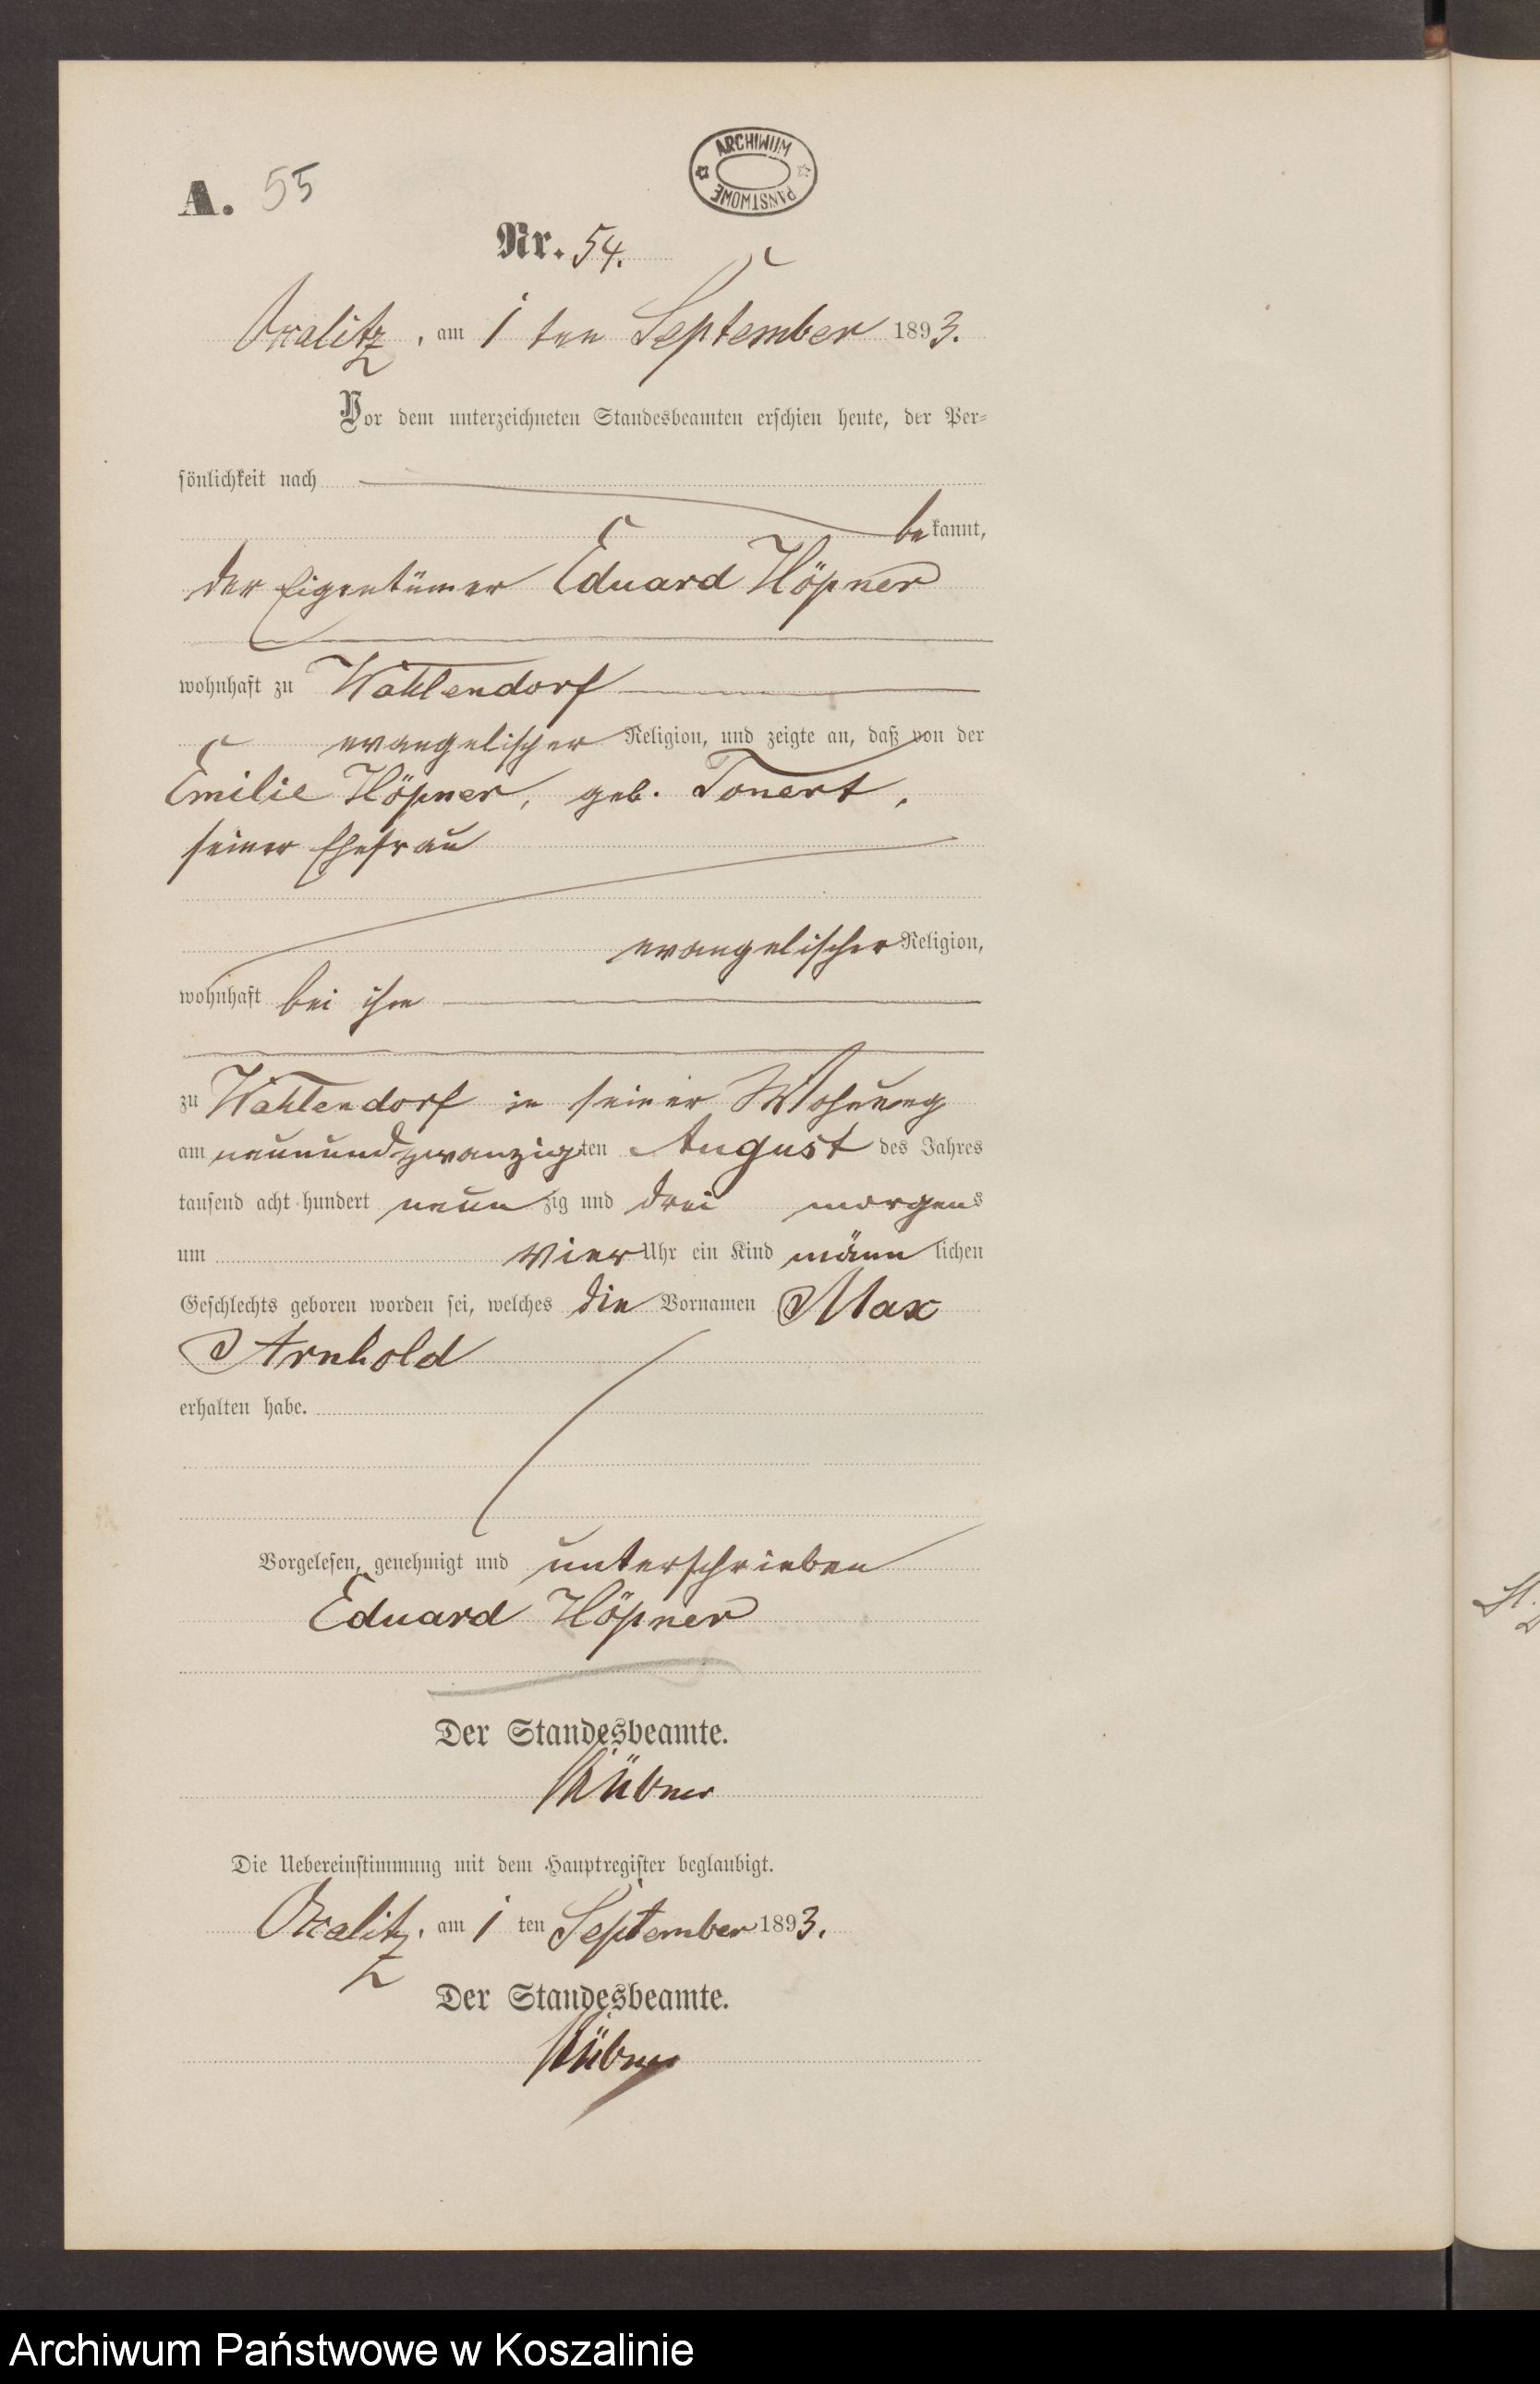 ARCHIWUM PAŃSTWOWE
A. 55
Nr. 54.
Wralitz, am 1 ten September 1893.
Vor dem unterzeichneten Standesbeamten erschien heute, der Per-
sönlichkeit nach
bekannt,
der Eigentümer Eduard Höpner
wohnhaft zu Wahlendorf
evangelischer Religion, und zeigte an, daß von der
Emilie Höpner, geb. Tonert,
seiner Ehefrau
evangelischer Religion,
wohnhaft bei ihm
zu Wahlendorf in seiner Wohnung
am neunundzwanzigten August des Jahres
tausend acht hundert neunzig und drei morgens
um vier Uhr ein Kind männlichen
Geschlechts geboren worden sei, welches die Vornamen Max
Arnhold
erhalten habe.
Vorgelesen, genehmigt und unterschrieben
Eduard Höpner
Der Standesbeamte.
Die Uebereinstimmung mit dem Hauptregister beglaubigt.
Wralitz, am 1 ten September 1893.
Der Standesbeamte.
Archiwum Państwowe w Koszalinie